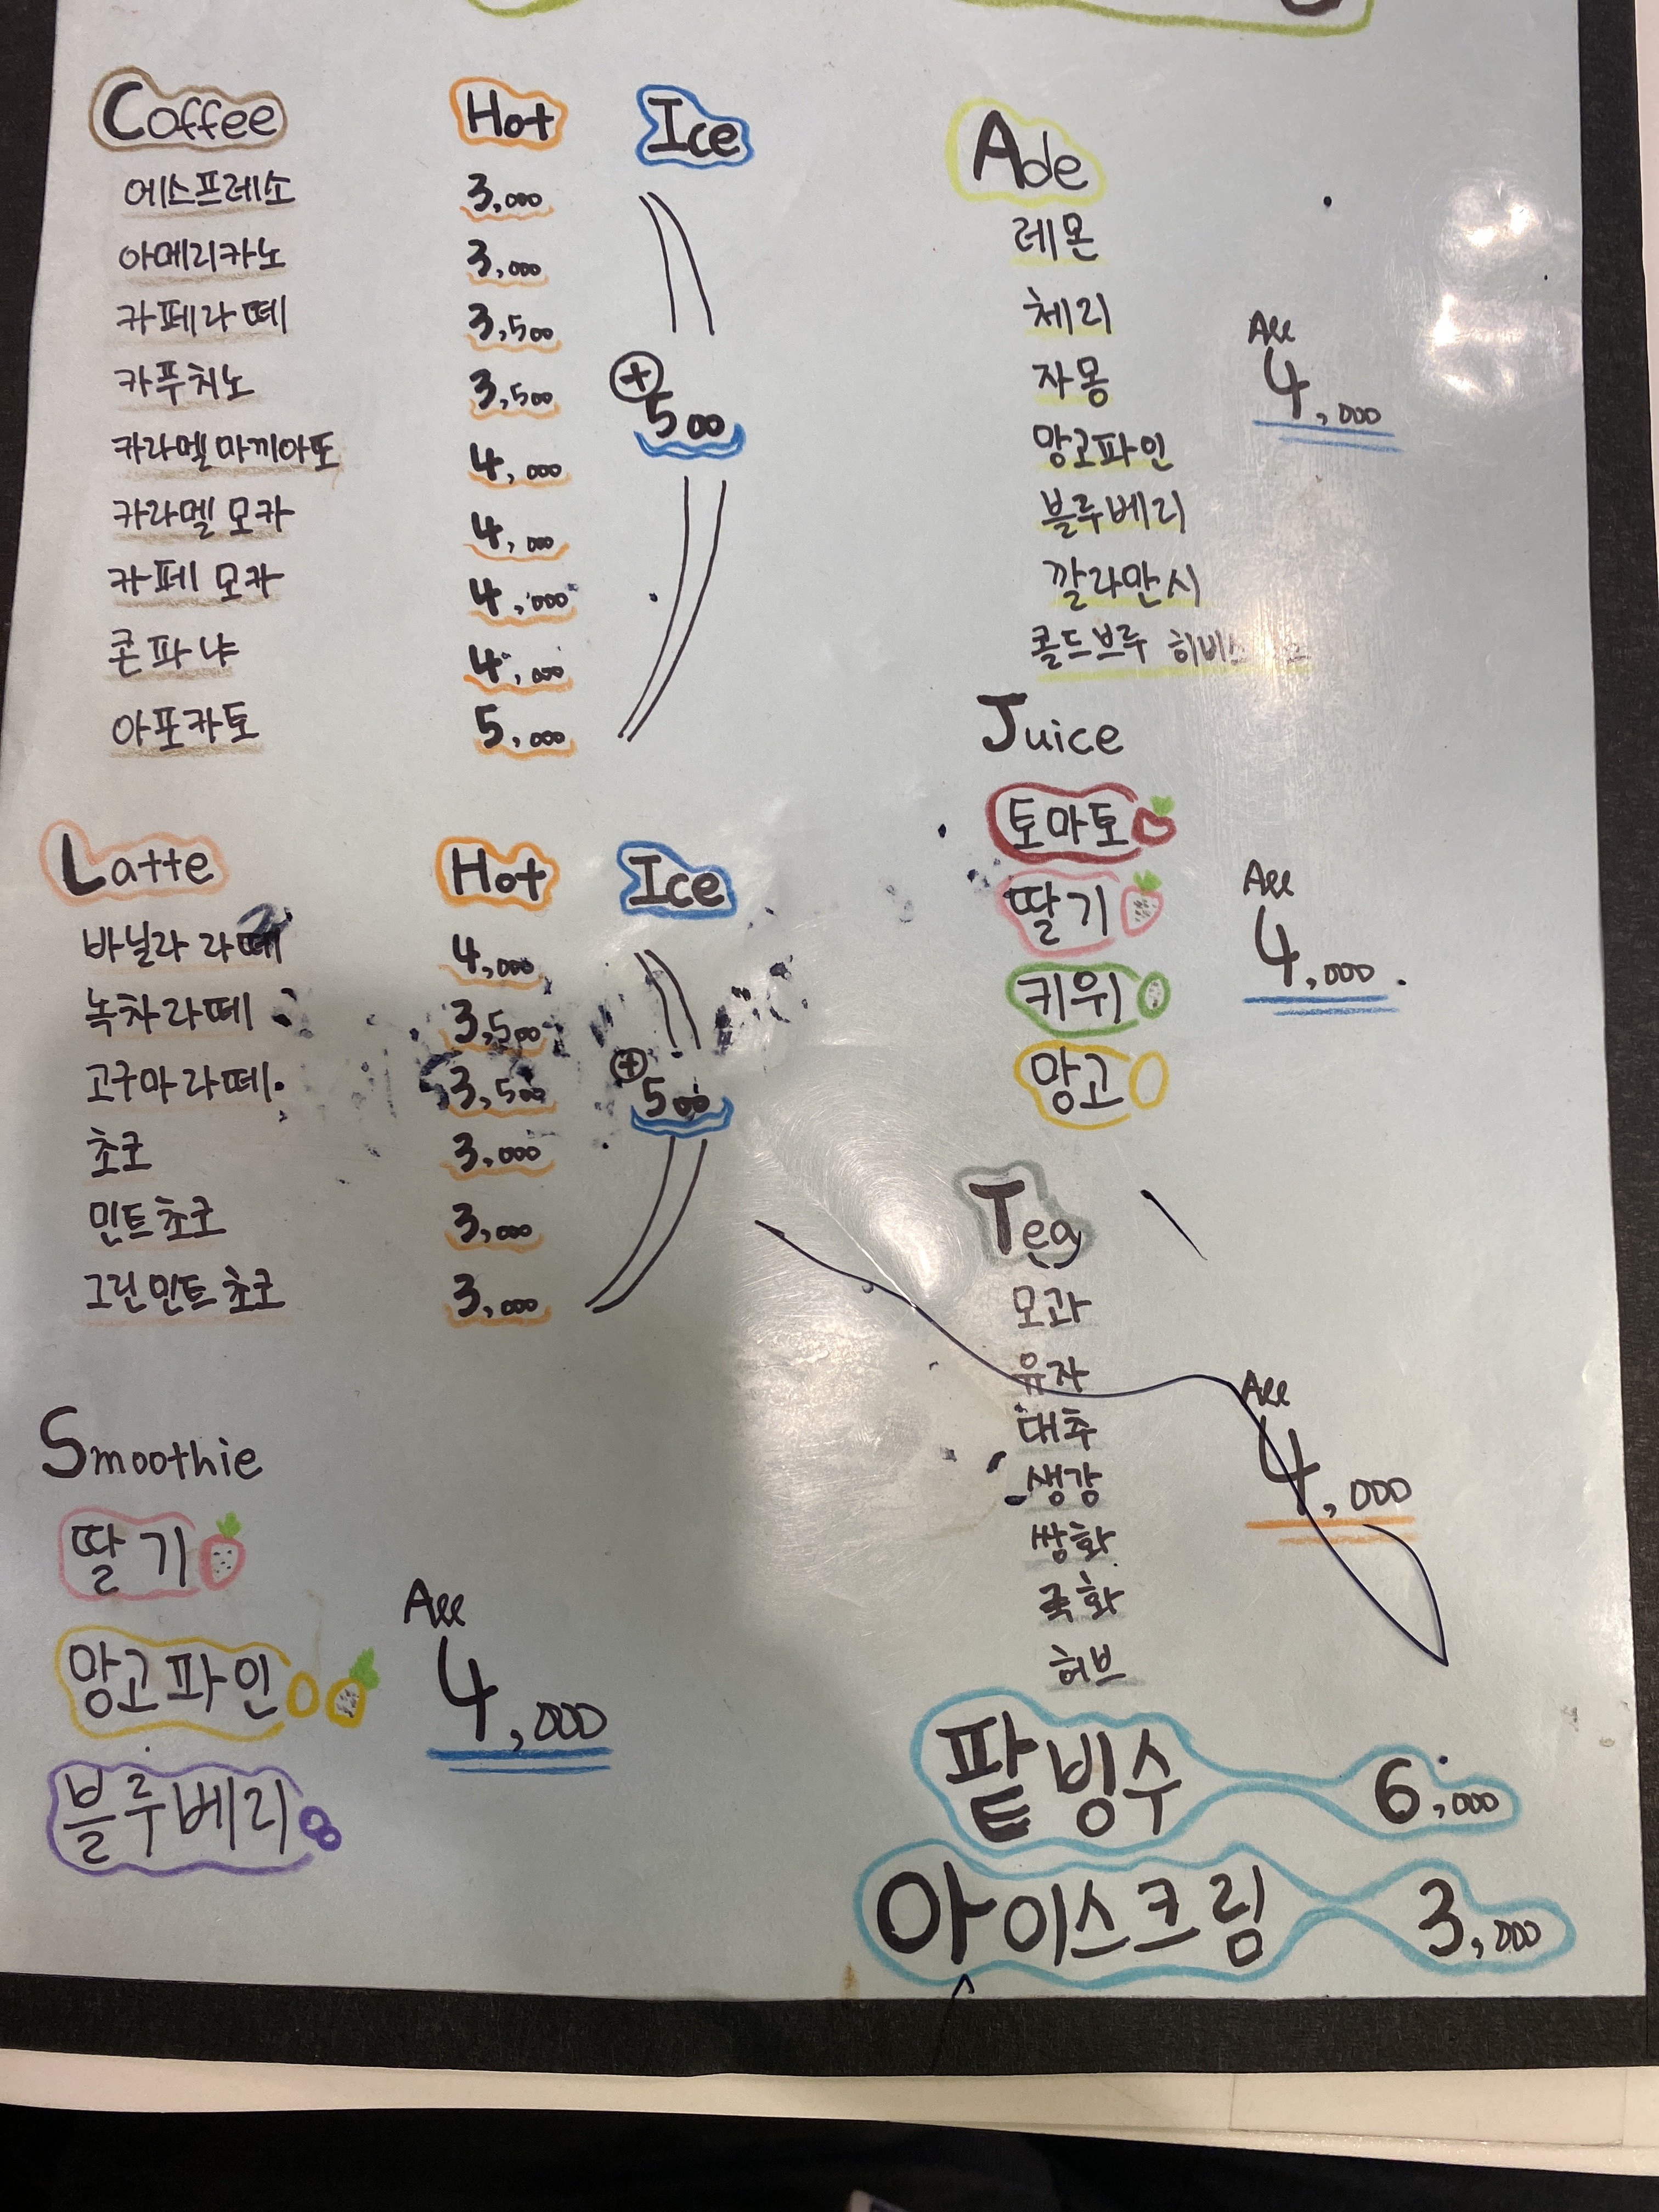 Coffee Hot Ice
에스프레소 3,000
아메리카노 3,000
카페라떼 3,500
카푸치노 3,500
카라멜마끼아또 4,000
카라멜 모카 4,000
카페 모카 4,000
콘파냐 4,000
아포카토 5,000
+ 500
Latte Hot Ice
바닐라 라떼 4,000
녹차라떼 3,500
고구마라떼 3,500
초코 3,000
민트초코 3,000
그린민트초코 3,000
+ 500
Smoothie
딸기
망고파인
블루베리
All
4,000
Ade
레몬
체리
자몽
망고파인
블루베리
깔라만시
콜드브루
All
4,000
Juice
토마토
딸기
키위
망고
All
4,000.
Tea
모과
유자
대추
생강
쌍화
국화
허브
All
4,000
팥빙수 6,000
아이스크림 3,000